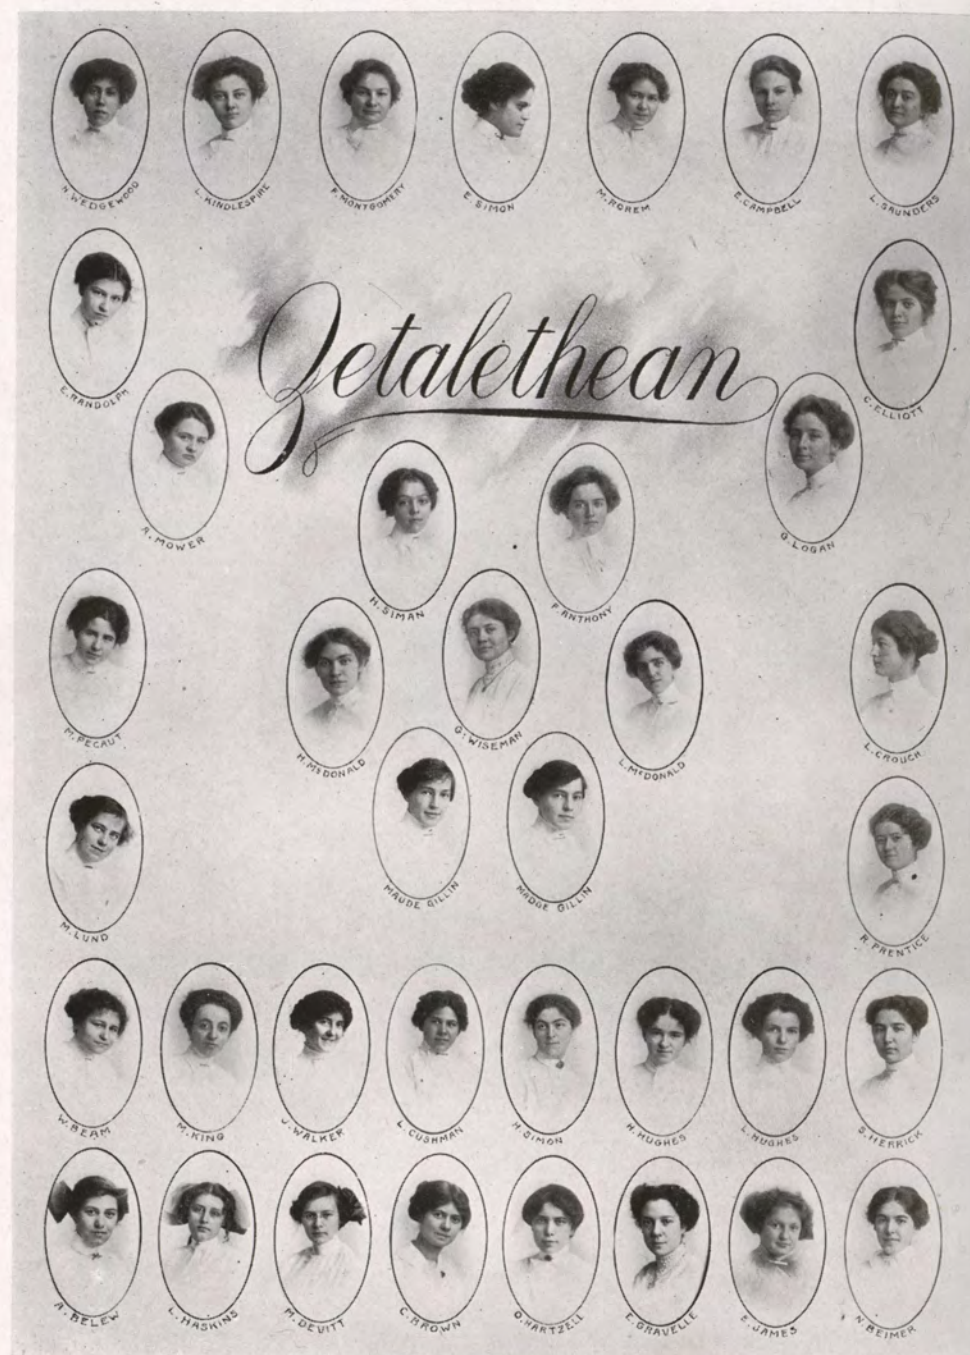 H. WEDGEWOOD
L. KINDLESPIRE
F. MONTGOMERY
E. SIMON
M. ROREM
E. CAMPBELL
L. SAUNDERS
Zetalethean
E. RANDOLPH
C. ELLIOTT
R. MOWER
G. LOGAN
H. SIMAN
F. ANTHONY
M. PECAUT
H. McDONALD
G. WISEMAN
L. McDONALD
L. CROUCH
MAUDE GILLIN
MADGE GILLIN
M. LUND
R. PRENTICE
W. BEAM
M. KING
J. WALKER
L. CUSHMAN
H. SIMON
H. HUGHES
L. HUGHES
S. HERRICK
A. BELEW
L. HASKINS
M. DEVITT
C. BROWN
O. HARTZELL
E. GRAVELLE
E. JAMES
N. BEIMER